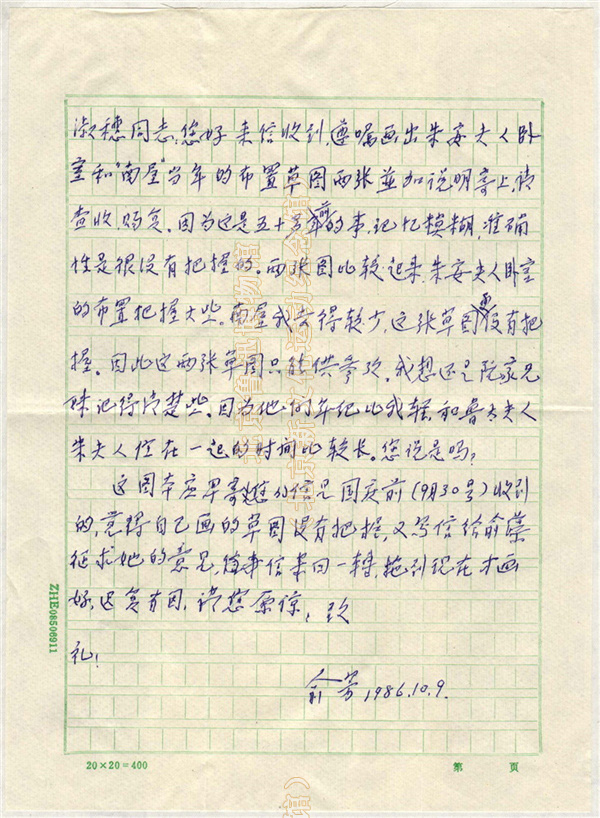 淑穗同志：您好 来信收到，遵嘱画出朱安夫人卧
室和“南屋”当年的布置草图两张並加说明寄上，请
查收，为复。因为这是五十多年前的事，记忆模糊，准确
性是很没有把握的。两张图比较起来，朱安夫人卧室
的布置把握大些。南屋我去得较少，这张草图更没有把
握。因此这两张草图只能供参攷。我想还是阮家兄
妹记得清楚些，因为他们年纪比我轻，和鲁太夫人
朱夫人住在一起的时间比较长。您说是吗？
这图本应早寄，信是国庆前（9月30号）收到
的，觉得自己画的草图没有把握，又写信给俞藻
征求她的意见，信来回一转，拖到现在才画
好，迟复有因，请您原谅，致
礼！
俞芳 1986.10.9.
ZHE08506911
20×20=400
第 页
北京鲁迅博物馆
（北京新文化运动纪念馆）